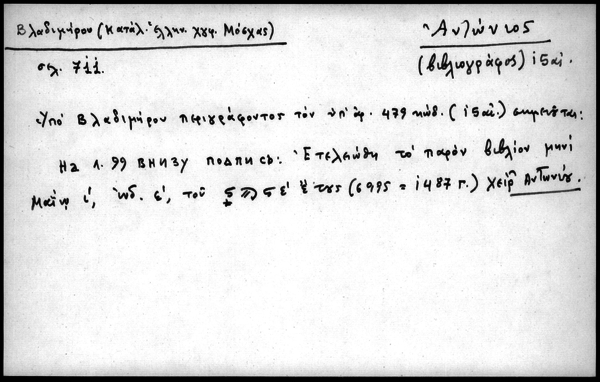 Βλαδιμήρου (Κατάλ. Ἑλλην. χγφ. Μόσχας)
Ἀντώνιος
σελ. 711.
(βιβλιογράφος) 15 αἰ.
Ὑπὸ Βλαδιμήρου περιγράφοντος τὸν ὑπ' ἀρ. 479 κώδ. (15 αἰ.) σημειοῦται:
На л. 99 внизу подпись: Ἐτελειώθη τὸ παρὸν βιβλίον μηνὶ
Μαΐῳ ί, ἰνδ. ε', τοῦ ϛϡϟε' ἔτους (6995 = 1487 г.) χειρὶ Ἀντωνίου.